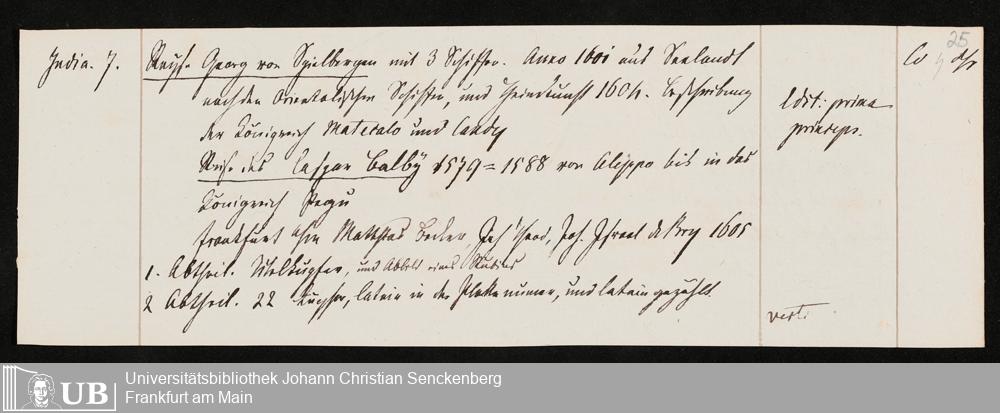 India. 7.
Reise Georg von Spielbergen mit 3 Schiffen. Anno 1601 aus Seelandt
nach den Orientalischen Schiffen, und Heimkunft 1604. Beschreibung
der Königreich Matecalo und Candy
Reise des Caspar Balby 1579 = 1588 von Alippo bis in das
Königreich Pegu
Frankfurt Matthias Becker, Joh Theod, Joh. Israel de Bry 1605
1. Abtheil. Titelkupfer, und Abbild eines
2 Abtheil. 22 Kupfer, latein in der Platte numer, und latein gezählt.
Edit: prima
princeps.
vert.
25
Co
Universitätsbibliothek Johann Christian Senckenberg
Frankfurt am Main
UB